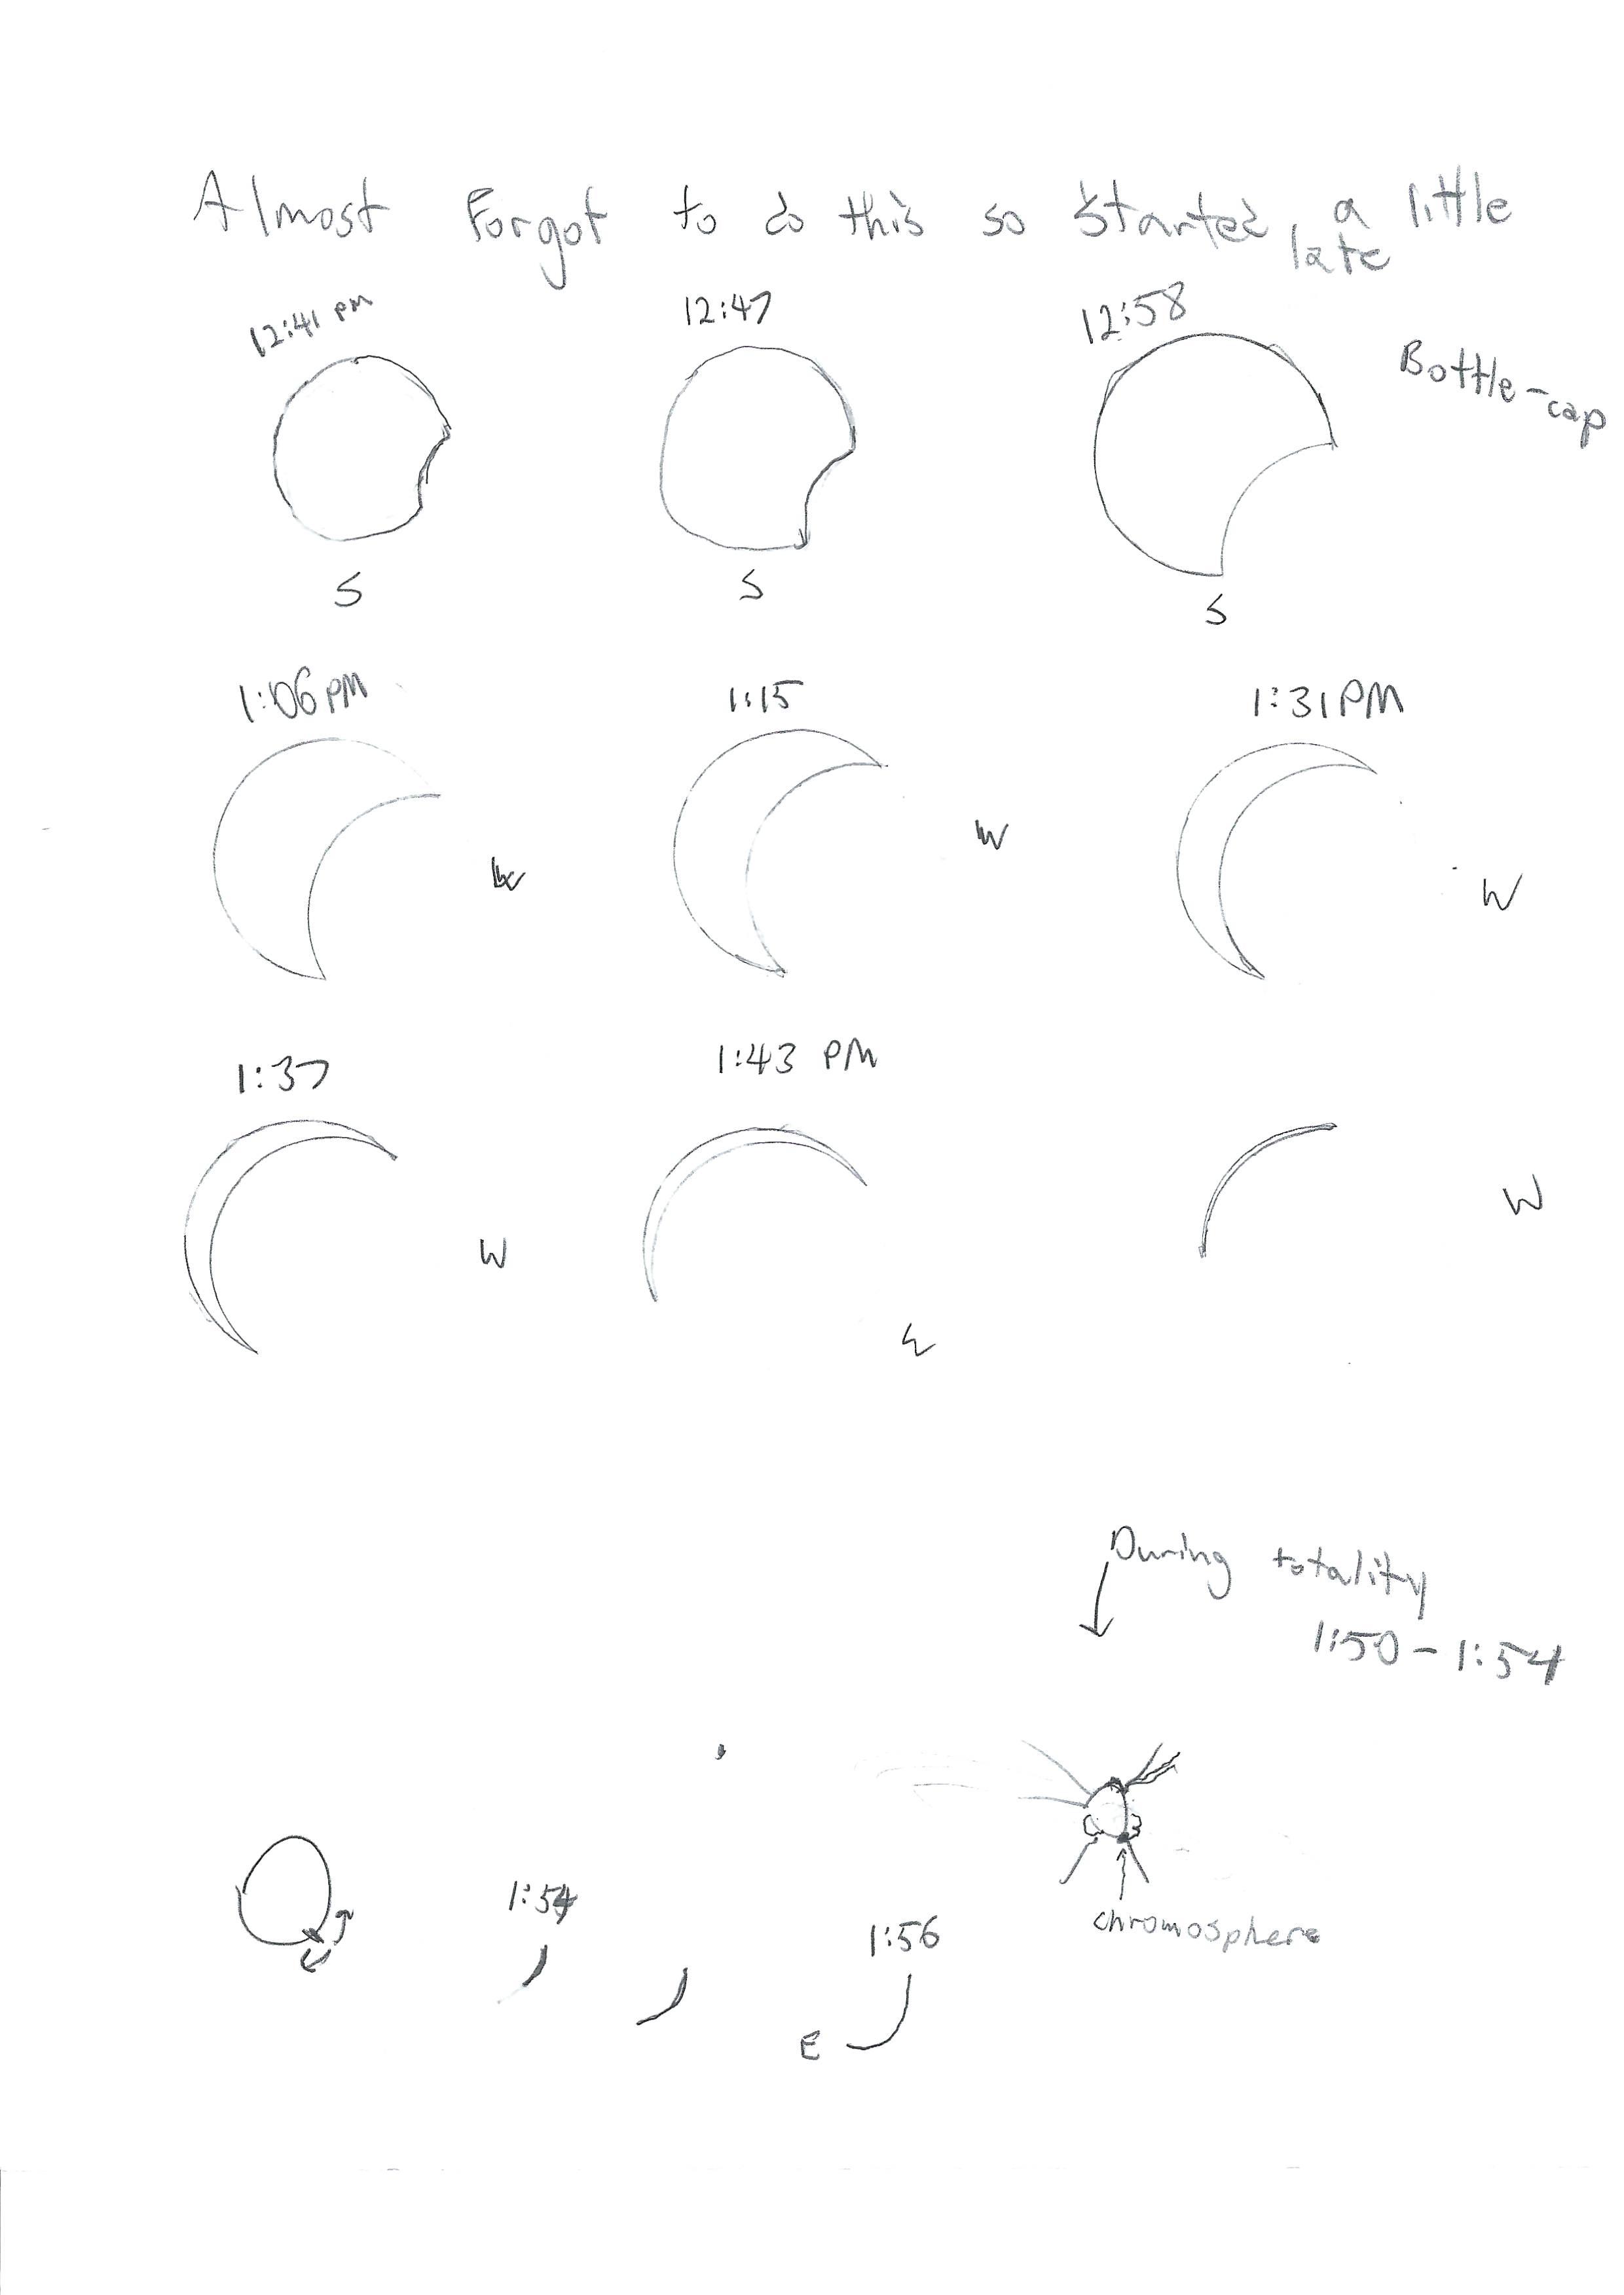 Almost Forgot to do this so started a little
late
12:41 pm
12:47
12:58
Bottle-cap
S
S
S
1:06 PM
1:15
1:31 PM
W
W
W
1:37
1:43 PM
W
W
During totality
1:50 - 1:54
1:54
chromosphere
1:56
E